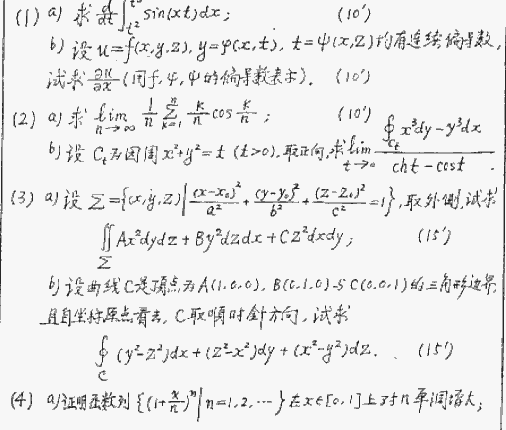 (1) a) 求 d/dt ∫_{t²} sin(xt)dx; (10')
b) 设 u=f(x,y,z), y=φ(x,t), t=ψ(x,z)均有连续偏导数,
试求 ∂u/∂x (用f,φ,ψ的偏导数表示). (10')
(2) a) 求 lim_{n→∞} 1/n ∑_{k=1}^{n} k/n cos k/n; (10')
b) 设 C_t为圆周 x²+y²=t (t>0), 取正向, 求 lim_{t→0} ∮_{C_t} x³dy-y³dx / cht-cost.
(3) a) 设 Σ={(x,y,z)| (x-x₀)²/a² + (y-y₀)²/b² + (z-z₀)²/c² =1}, 取外侧, 试求
∬_Σ Ax²dydz + By²dzdx + Cz²dxdy; (15')
b) 设曲线C是顶点为A(1,0,0), B(0,1,0)与C(0,0,1)的三角形边界,
且自坐标原点看去, C取顺时针方向, 试求
∮_C (y²-z²)dx+(z²-x²)dy+(x²-y²)dz. (15')
(4) a) 证明函数列 {(1+x/n)ⁿ|n=1,2,…} 在x∈[0,1]上对n单调增大;